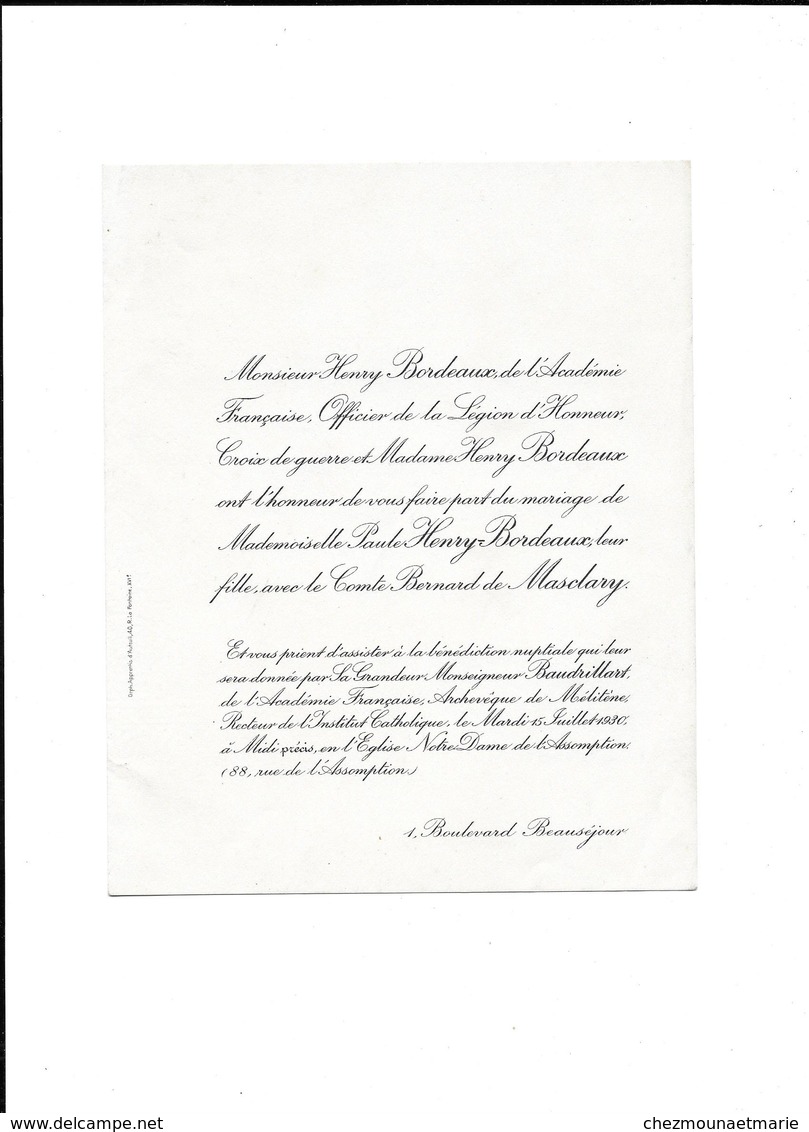 Monsieur Henry Bordeaux, de l'Académie
Française, Officier de la Légion d'Honneur,
Croix de guerre et Madame Henry Bordeaux
ont l'honneur de vous faire part du mariage de
Mademoiselle Paule Henry-Bordeaux, leur
fille, avec le Comte Bernard de Masclary.
Et vous prient d'assister à la bénédiction nuptiale qui leur
sera donnée par Sa Grandeur Monseigneur Baudrillart,
de l'Académie Française, Archevêque de Mélitène,
Recteur de l'Institut Catholique, le Mardi 15 Juillet 1930,
à Midi précis, en l'Eglise Notre-Dame de l'Assomption.
(88, rue de l'Assomption)
1, Boulevard Beauséjour
Orph. Apprentis d'Auteuil, 40, R. La Fontaine, XVIe
delcampe.net
chezmounaetmarie